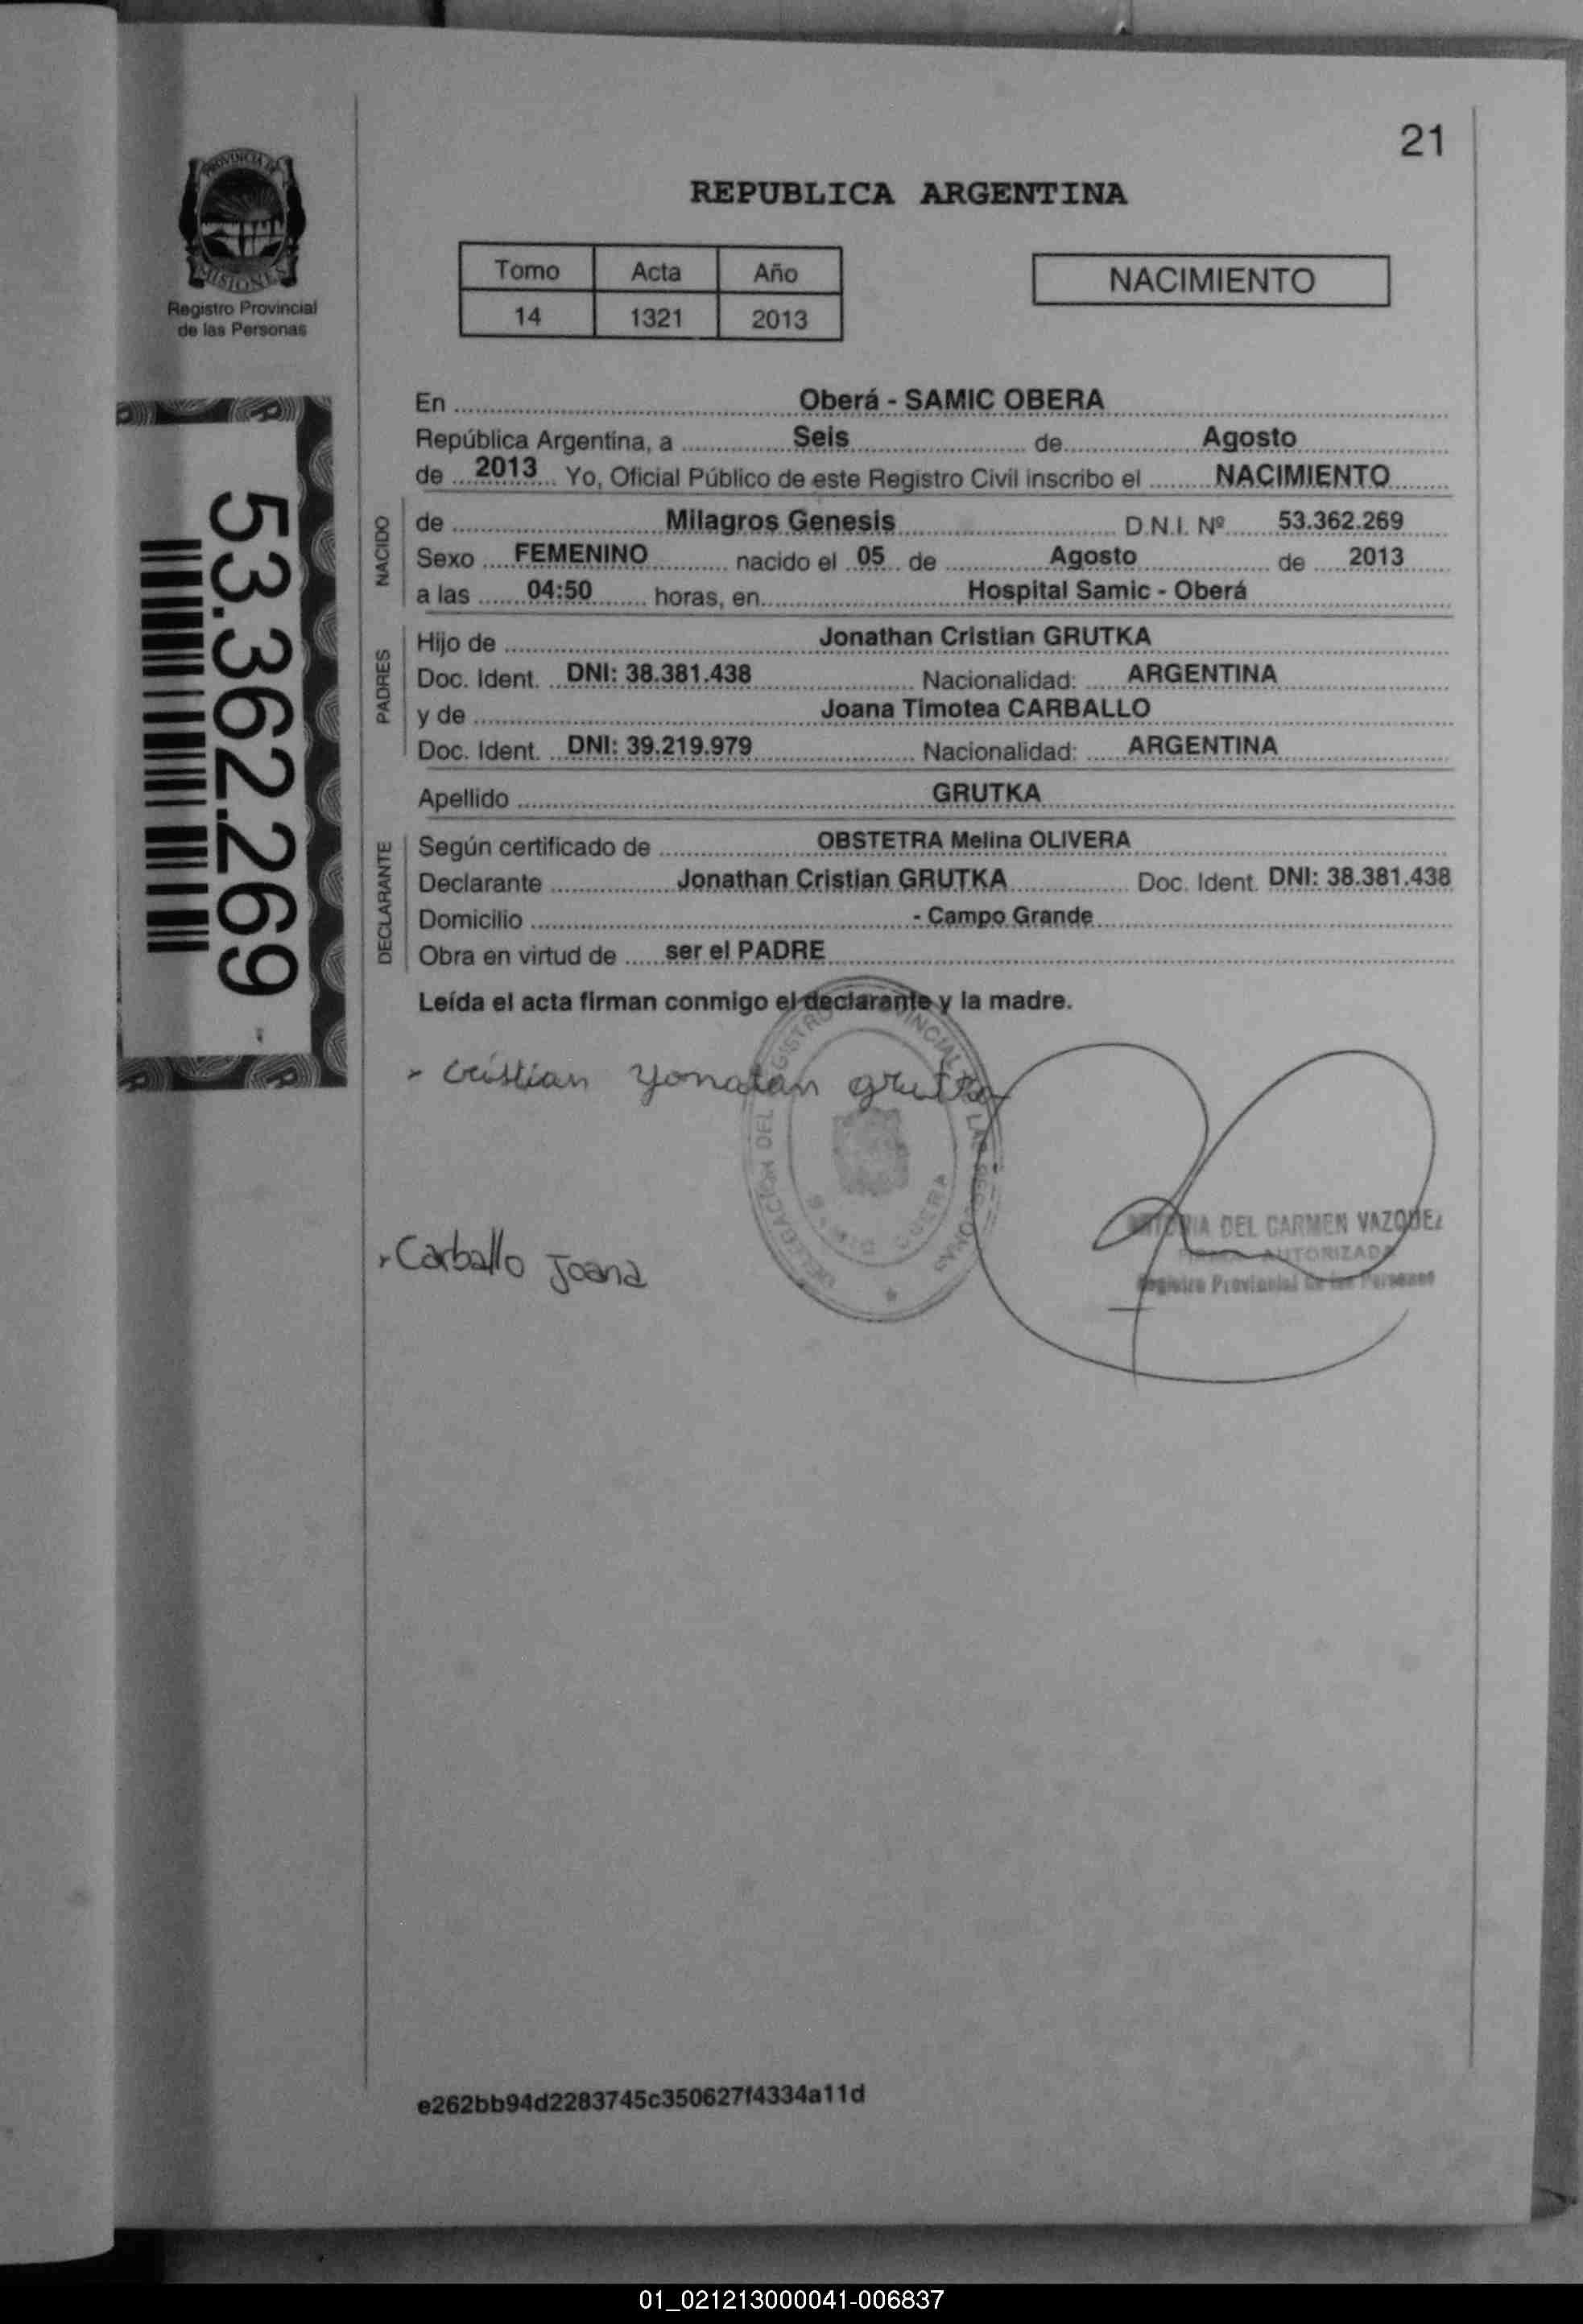 21
PROVINCIA DE
MISIONES
Registro Provincial
de las Personas
REPUBLICA ARGENTINA
Tomo Acta Año
14 1321 2013
NACIMIENTO
53.362.269
En Oberá - SAMIC OBERA
República Argentina, a Seis de Agosto
de 2013 Yo, Oficial Público de este Registro Civil inscribo el NACIMIENTO
NACIDO
de Milagros Genesis D.N.I. Nº 53.362.269
Sexo FEMENINO nacido el 05 de Agosto de 2013
a las 04:50 horas, en Hospital Samic - Oberá
PADRES
Hijo de Jonathan Cristian GRUTKA
Doc. Ident. DNI: 38.381.438 Nacionalidad: ARGENTINA
y de Joana Timotea CARBALLO
Doc. Ident. DNI: 39.219.979 Nacionalidad: ARGENTINA
Apellido GRUTKA
DECLARANTE
Según certificado de OBSTETRA Melina OLIVERA
Declarante Jonathan Cristian GRUTKA Doc. Ident. DNI: 38.381.438
Domicilio - Campo Grande
Obra en virtud de ser el PADRE
Leída el acta firman conmigo el declarante y la madre.
Cristian Yonatan grutka
DELEGACION DEL REGISTRO PROVINCIAL DE LAS PERSONAS
OBERA
Carballo Joana
DEL CARMEN VAZQUEZ
FIRMA AUTORIZADA
Registro Provincial de las Personas
e262bb94d2283745c350627f4334a11d
01_021213000041-006837